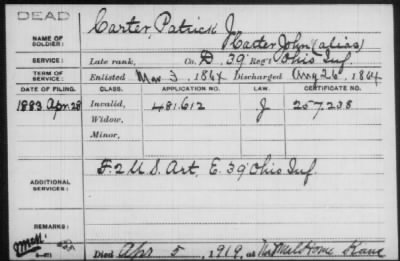 DEAD
NAME OF SOLDIER: Carter, Patrick J.
Hacter John (alias)
SERVICE: Late rank, Co. D. 39 Reg't Ohio Inf.
TERM OF SERVICE: Enlisted Mar. 3, 1864 Discharged Aug 26, 1864
DATE OF FILING. CLASS. APPLICATION NO. LAW. CERTIFICATE NO.
1883 Apr. 28 Invalid, 481.612 J 257.238
Widow,
Minor,
ADDITIONAL SERVICES: F. 2 U S. Art. E. 39 Ohio Inf.
REMARKS:
Died Apr 5, 1919, at Nat Mil Home Kans